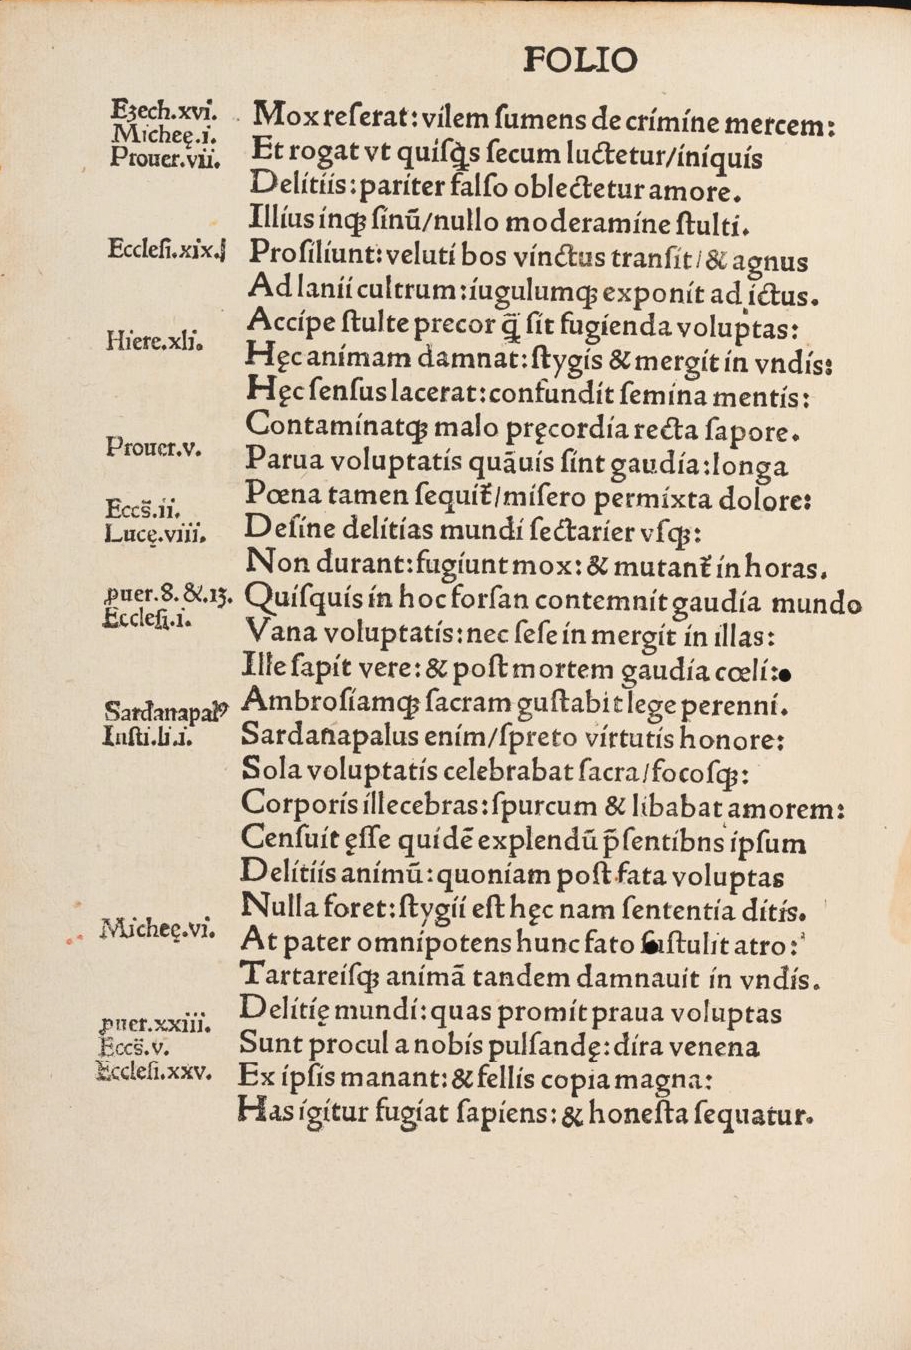 FOLIO
Ezech.xvi.
Micheę.i.
Prouer.vii.
Mox reſerat: vilem ſumens de crimine mercem:
Et rogat vt quiſq̈s ſecum luctetur/iniquis
Delitiis: pariter falſo oblectetur amore.
Illius inqꝫ ſinū/nullo moderamine ſtulti.
Eccleſi.xix.
Proſiliunt: veluti bos vinctus tranſit/& agnus
Ad lanii cultrum: iugulumqꝫ exponit ad ictus.
Accipe ſtulte precor q̄ ſit fugienda voluptas:
Hiere.xli.
Hęc animam damnat: ſtygis & mergit in vndis:
Hęc ſenſus lacerat: confundit ſemina mentis:
Contaminatqꝫ malo pręcordia recta ſapore.
Prouer.v.
Parua voluptatis quāuis ſint gaudia: longa
Pœna tamen ſequit᷑/miſero permixta dolore:
Eccs̄.ii.
Lucę.viii.
Deſine delitias mundi ſectarier vſqꝫ:
Non durant: fugiunt mox: & mutant᷑ in horas.
ꝓuer.8.&.13.
Eccleſi.i.
Quiſquis in hoc forſan contemnit gaudia mundo
Vana voluptatis: nec ſeſe in mergit in illas:
Ille ſapit vere: & poſt mortem gaudia cœli:
Ambroſiamqꝫ ſacram guſtabit lege perenni.
Sardanapalꝰ
Iuſti.li.i.
Sardanapalus enim/ſpreto virtutis honore:
Sola voluptatis celebrabat ſacra/focoſqꝫ:
Corporis illecebras: ſpurcum & libabat amorem:
Cenſuit ęſſe quidē explendū p̄ſentibns ipſum
Delitiis animū: quoniam poſt fata voluptas
Nulla foret: ſtygii eſt hęc nam ſententia ditis.
Micheę.vi.
At pater omnipotens hunc fato ſuſtulit atro:
Tartareiſqꝫ animā tandem damnauit in vndis.
Delitię mundi: quas promit praua voluptas
ꝓuer.xxiii.
Eccs̄.v.
Eccleſi.xxv.
Sunt procul a nobis pulſandę: dira venena
Ex ipſis manant: & fellis copia magna:
Has igitur fugiat ſapiens: & honeſta ſequatur.